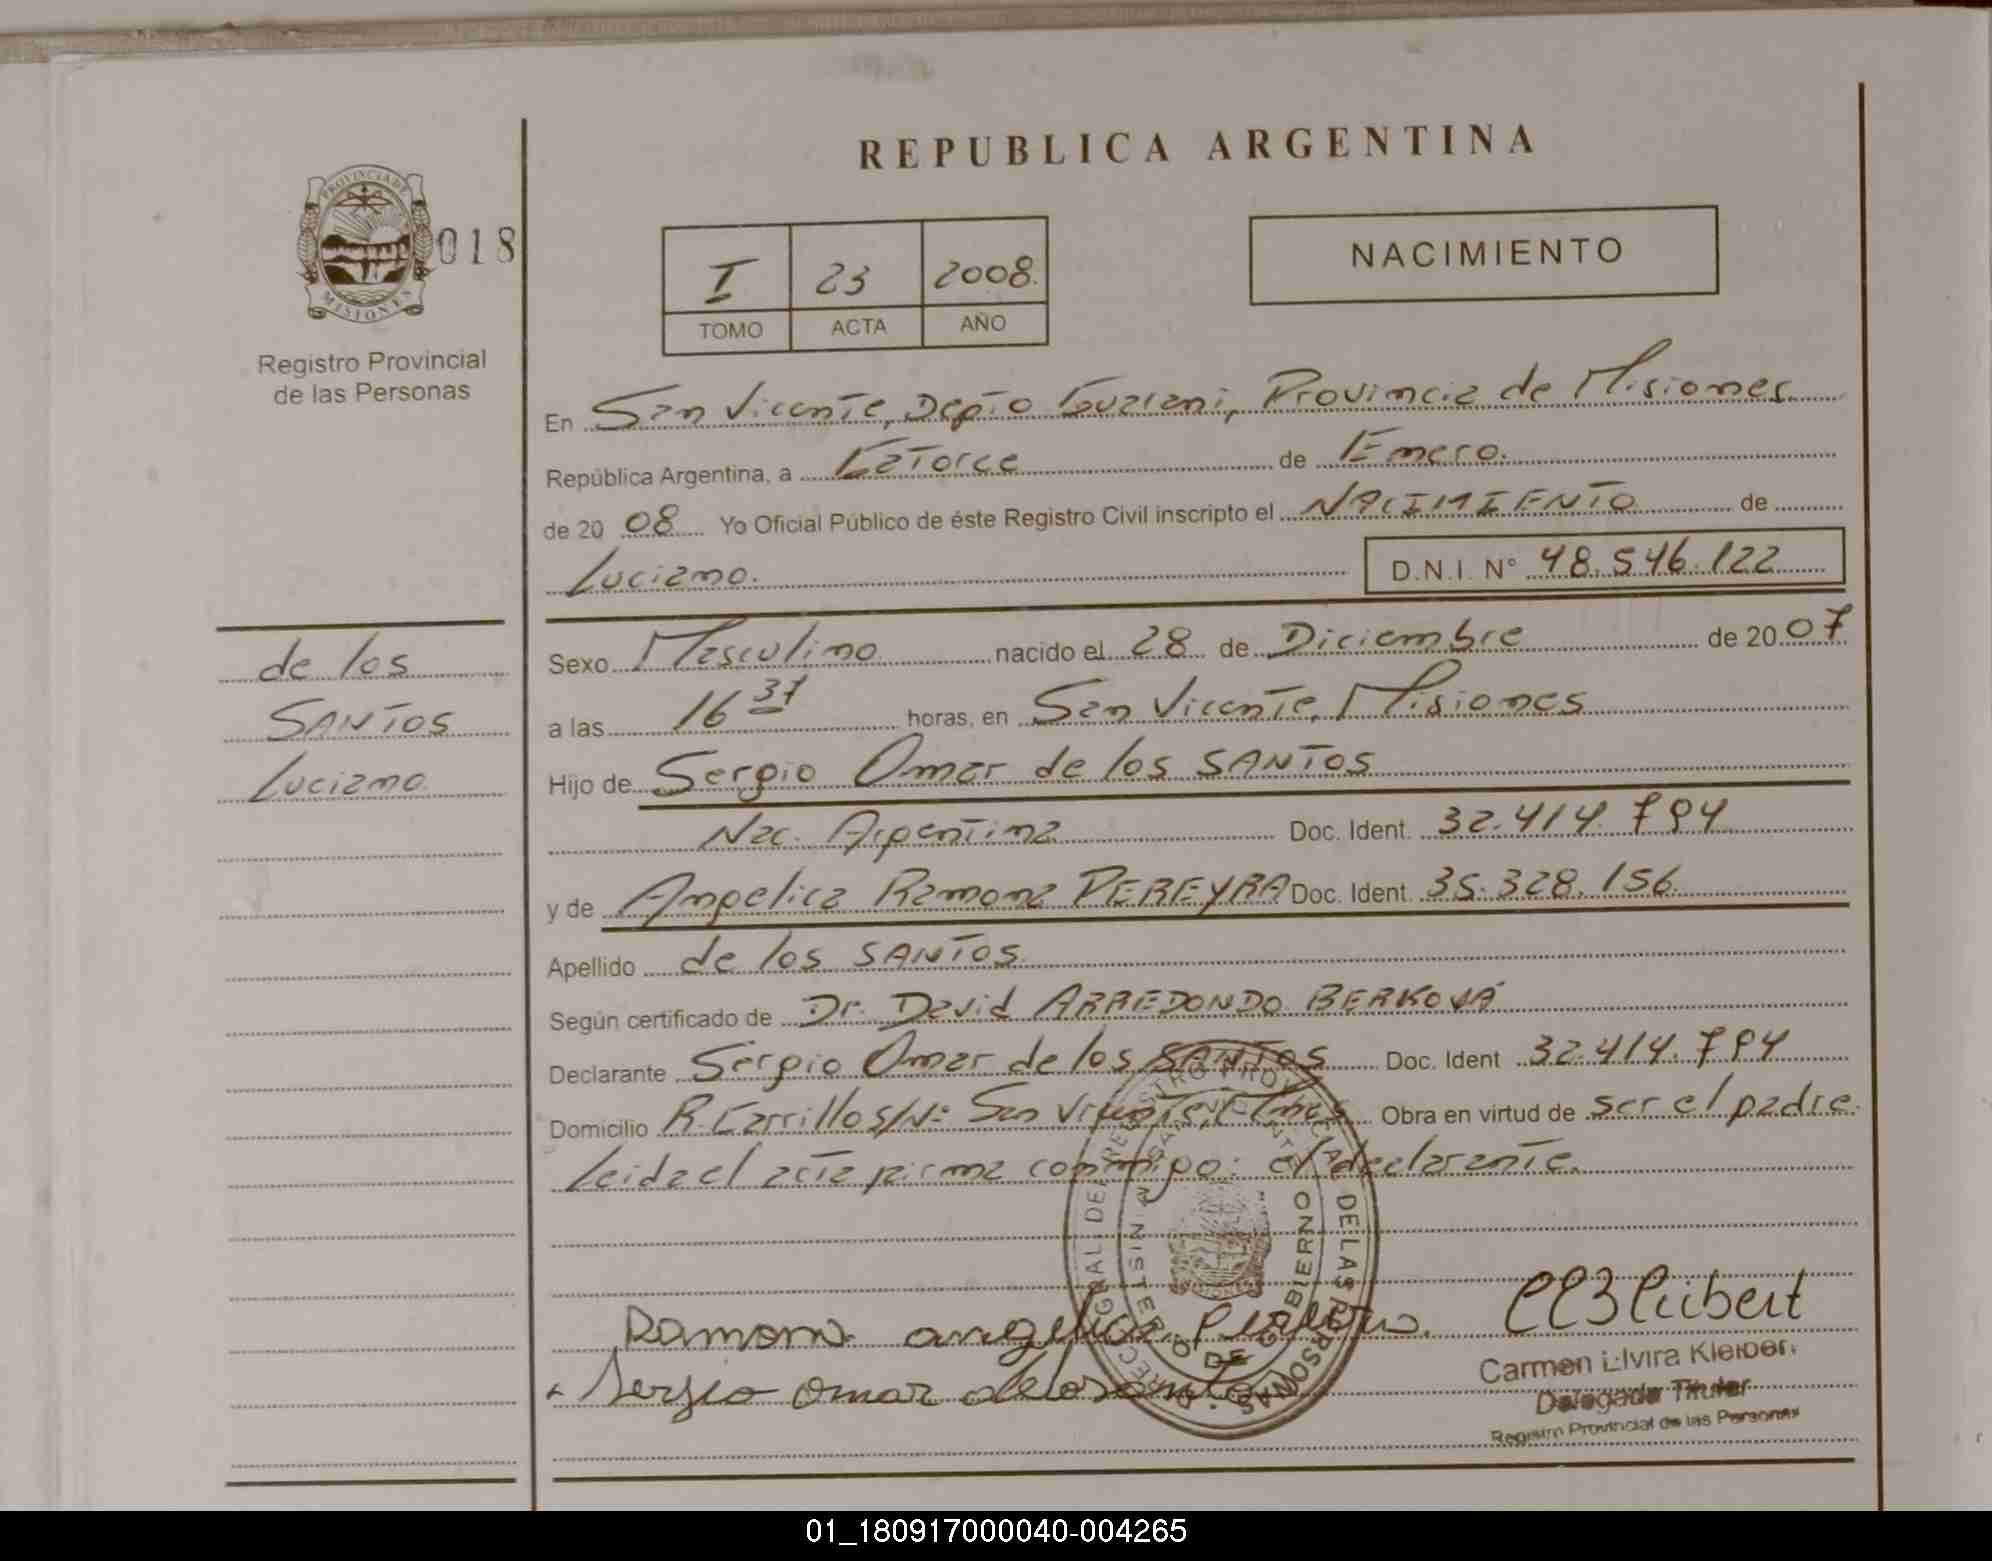 REPUBLICA ARGENTINA
PROVINCIA DE
MISIONES
018
Registro Provincial
de las Personas
I 23 2008.
TOMO ACTA AÑO
NACIMIENTO
En San Vicente, Depto Guarani, Provincia de Misiones
República Argentina, a Catorce de Enero.
de 20 08 Yo Oficial Público de éste Registro Civil inscripto el NACIMIENTO de
Luciano. D.N.I. N° 48.546.122
de los
SANTOS
Luciano
Sexo Masculino nacido el 28 de Diciembre de 20 07
a las 16 37 horas, en San Vicente, Misiones
Hijo de Sergio Omar de los SANTOS
Nac. Argentina Doc. Ident. 32.414.794
y de Angelica Ramona PEREYRA Doc. Ident. 35.328.156
Apellido de los SANTOS
Según certificado de Dr. David ARREDONDO
Declarante Sergio Omar de los SANTOS Doc. Ident 32.414.794
Domicilio R. Carrillo s/N= San Vicente, Mnes Obra en virtud de ser el padre.
Leida el acta firma conmigo: el declarante.
Ramona angelica
Sergio Omar de los santos
Carmen Elvira Kleiber
Delegada Titular
Registro Provincial de las Personas
01_180917000040-004265